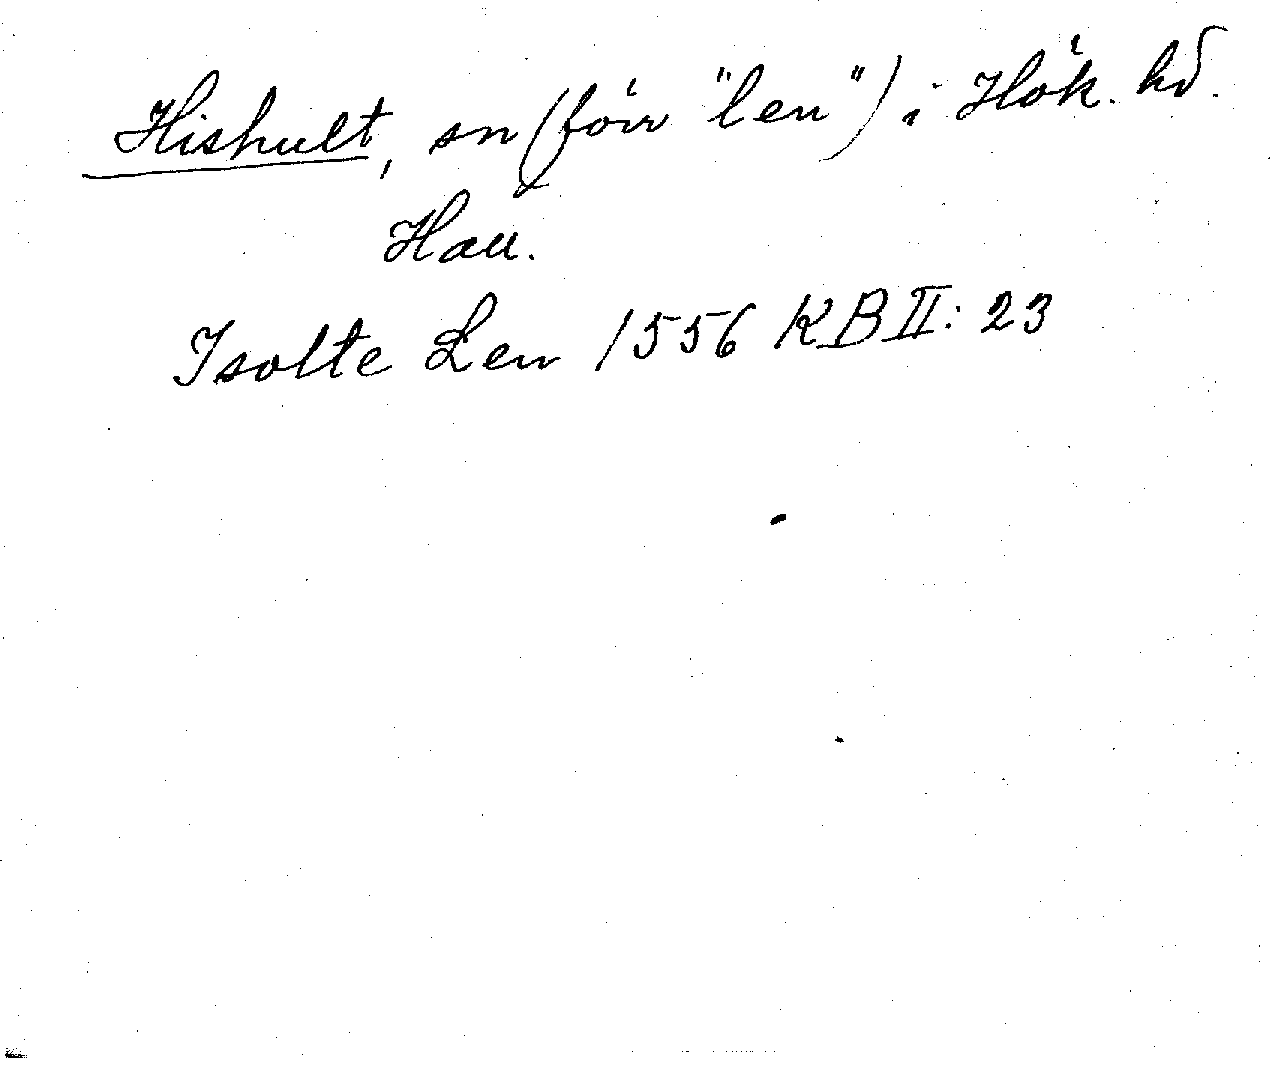 Hishult, sn (förr "len") i Hök. hd.
Hall.
Isolte Len 1556 KB II: 23